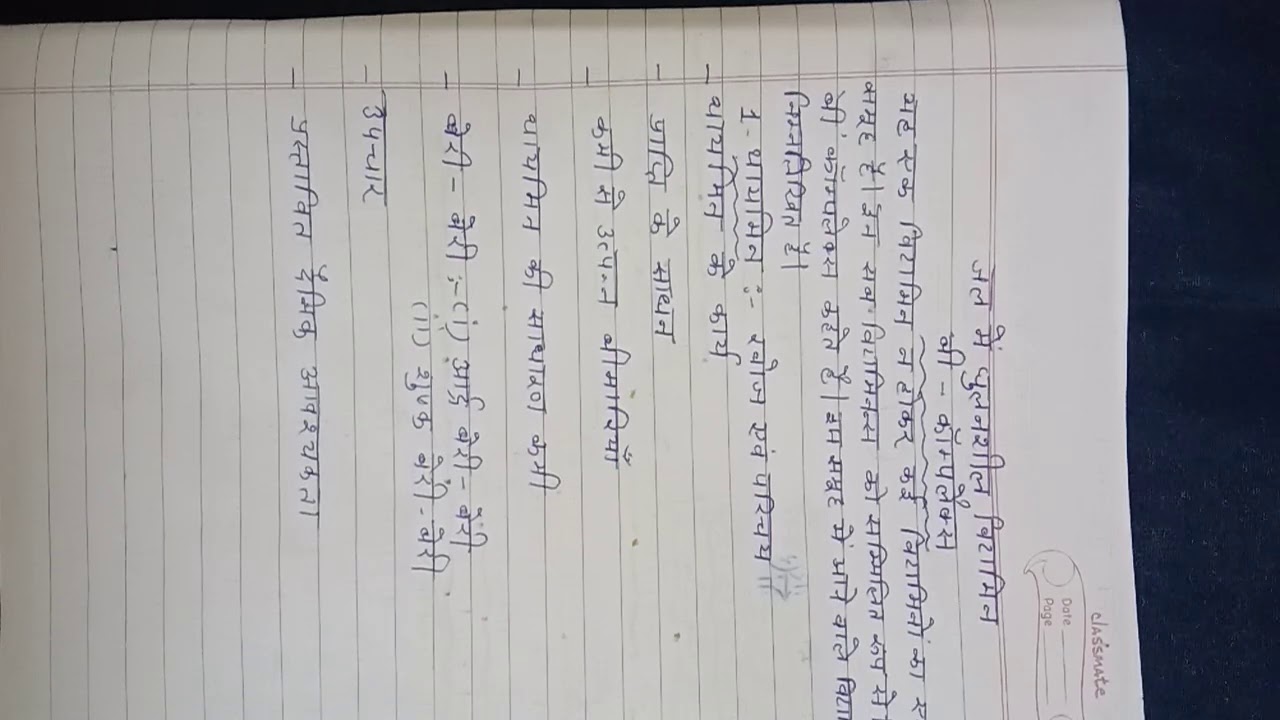 classmate
Date
Page
जल में घुलनशील विटामिन
बी - कॉम्पलेक्स
यह एक विटामिन न होकर कई विटामिनों का
समूह है। इन सब विटामिन्स को सम्मिलित रूप से
बी कॉम्पलेक्स कहते हैं। इस समूह में आने वाले
निम्नलिखित हैं।
1- थायमिन :- खोज एवं परिचय
- थायमिन के कार्य
- प्राप्ति के साधन
- कमी से उत्पन्न बीमारियाँ
- थायमिन की साधारण कमी
- बेरी - बेरी :- (i) आर्द्र बेरी - बेरी
(ii) शुष्क बेरी - बेरी
- उपचार
- प्रस्तावित दैनिक आवश्यकता